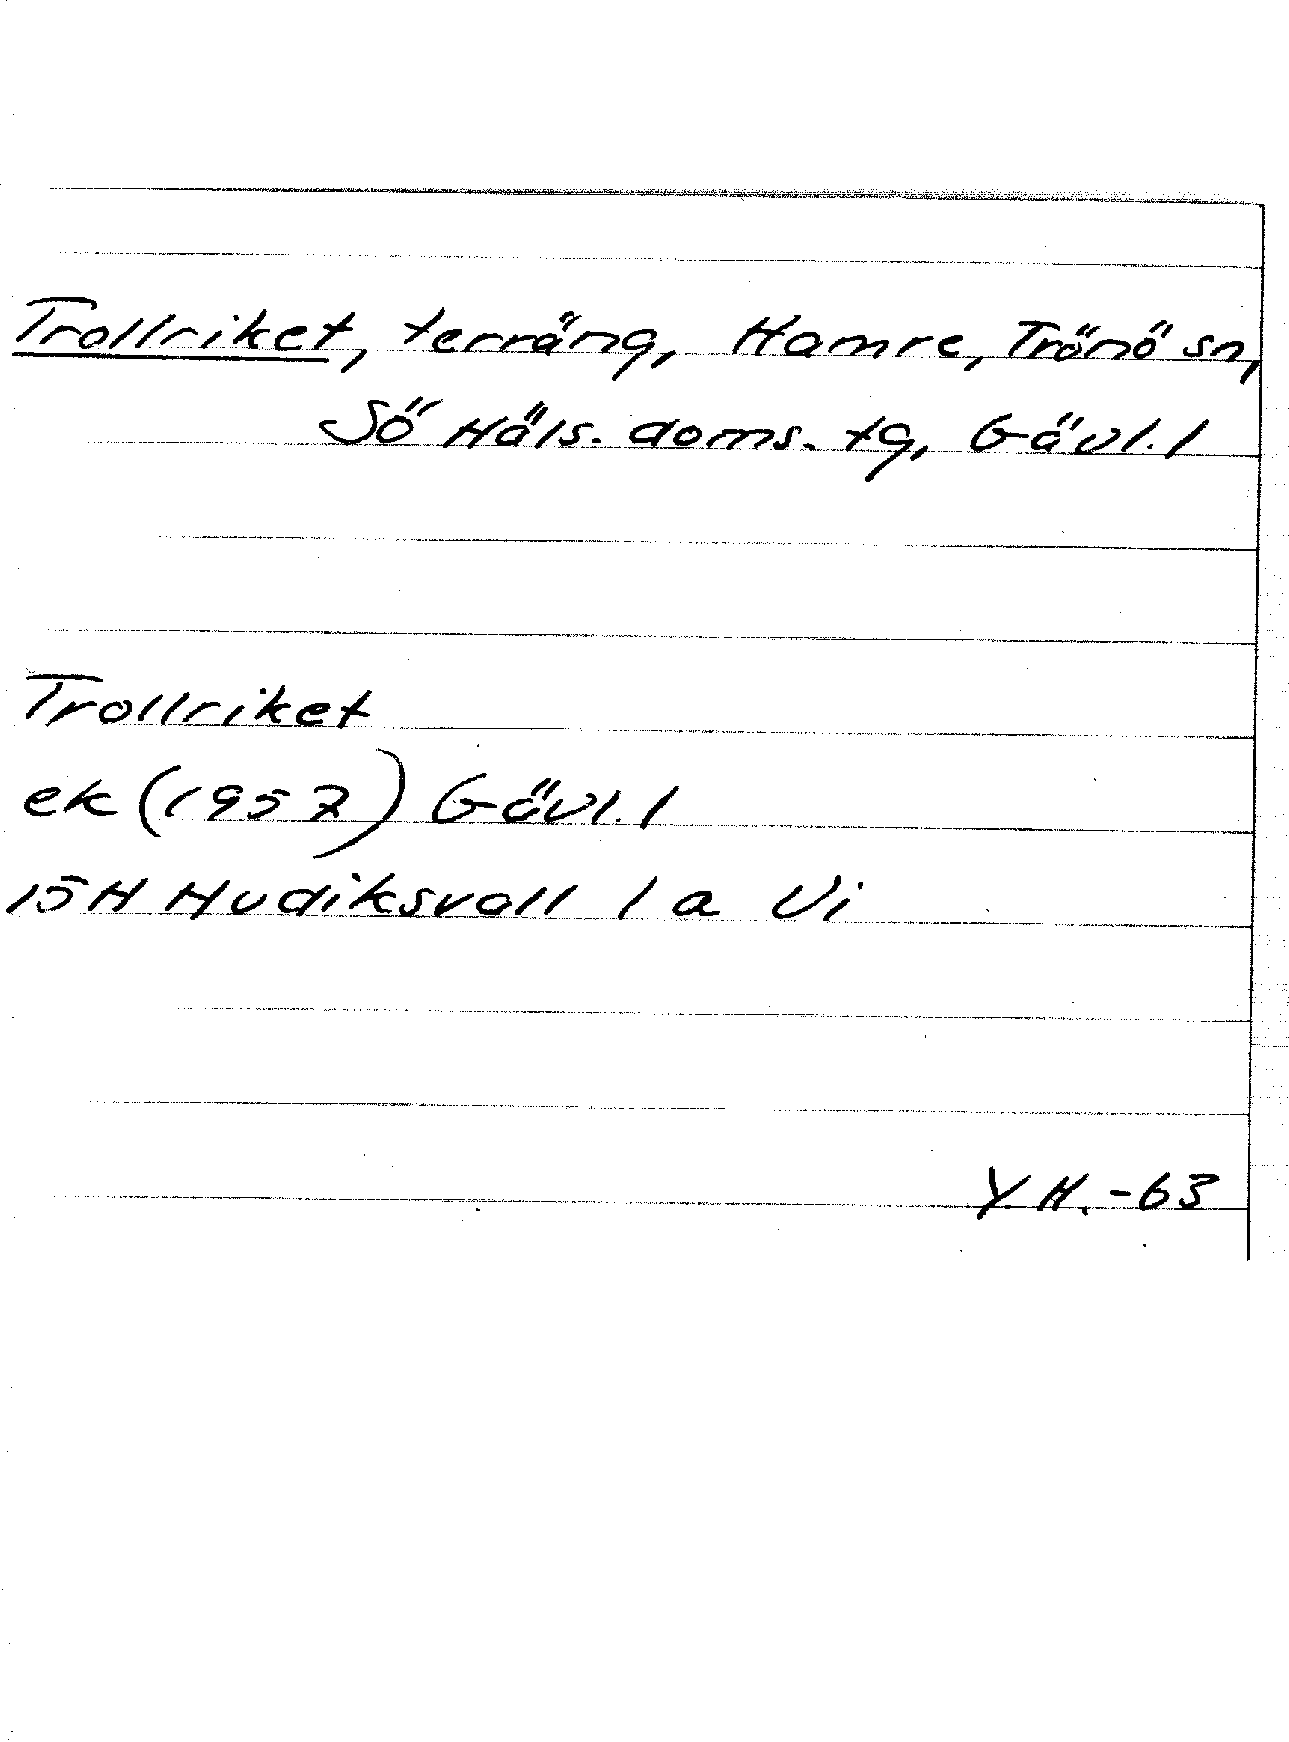 Trollriket, terräng, Hamre, Trönö sn,
Sö Häls. doms. tg, Gävl. l
Trollriket
ek (1957) Gävl. l
15H Hudiksvall 1 a Vi
Y.H. -63